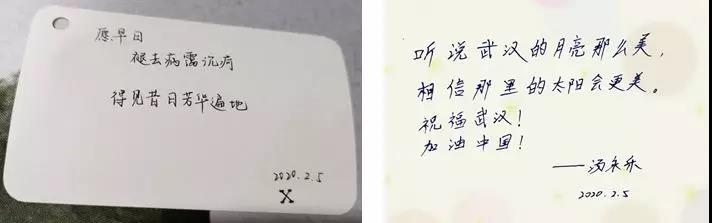 愿早日
褪去病霭沉疴
得见昔日芳华遍地
2020.2.5
X
听说武汉的月亮那么美，
相信那里的太阳会更美。
祝福武汉！
加油中国！
——汤乐乐
2020.2.5